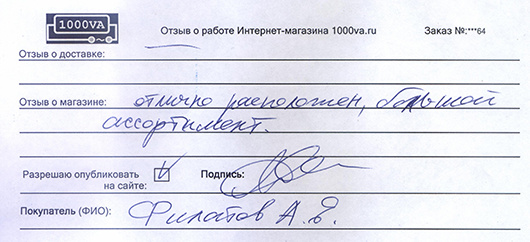 1000VA
Отзыв о работе Интернет-магазина 1000va.ru Заказ №:***64
Отзыв о доставке:
Отзыв о магазине: отлично расположен, большой
ассортимент.
Разрешаю опубликовать
на сайте: Подпись:
Покупатель (ФИО): Филатов А.В.